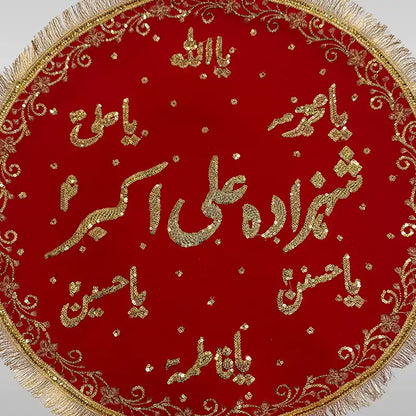 یا الله
یا محمد یا علی
شهزاده علی اکبر
یا حسن یا حسین
یا فاطمه